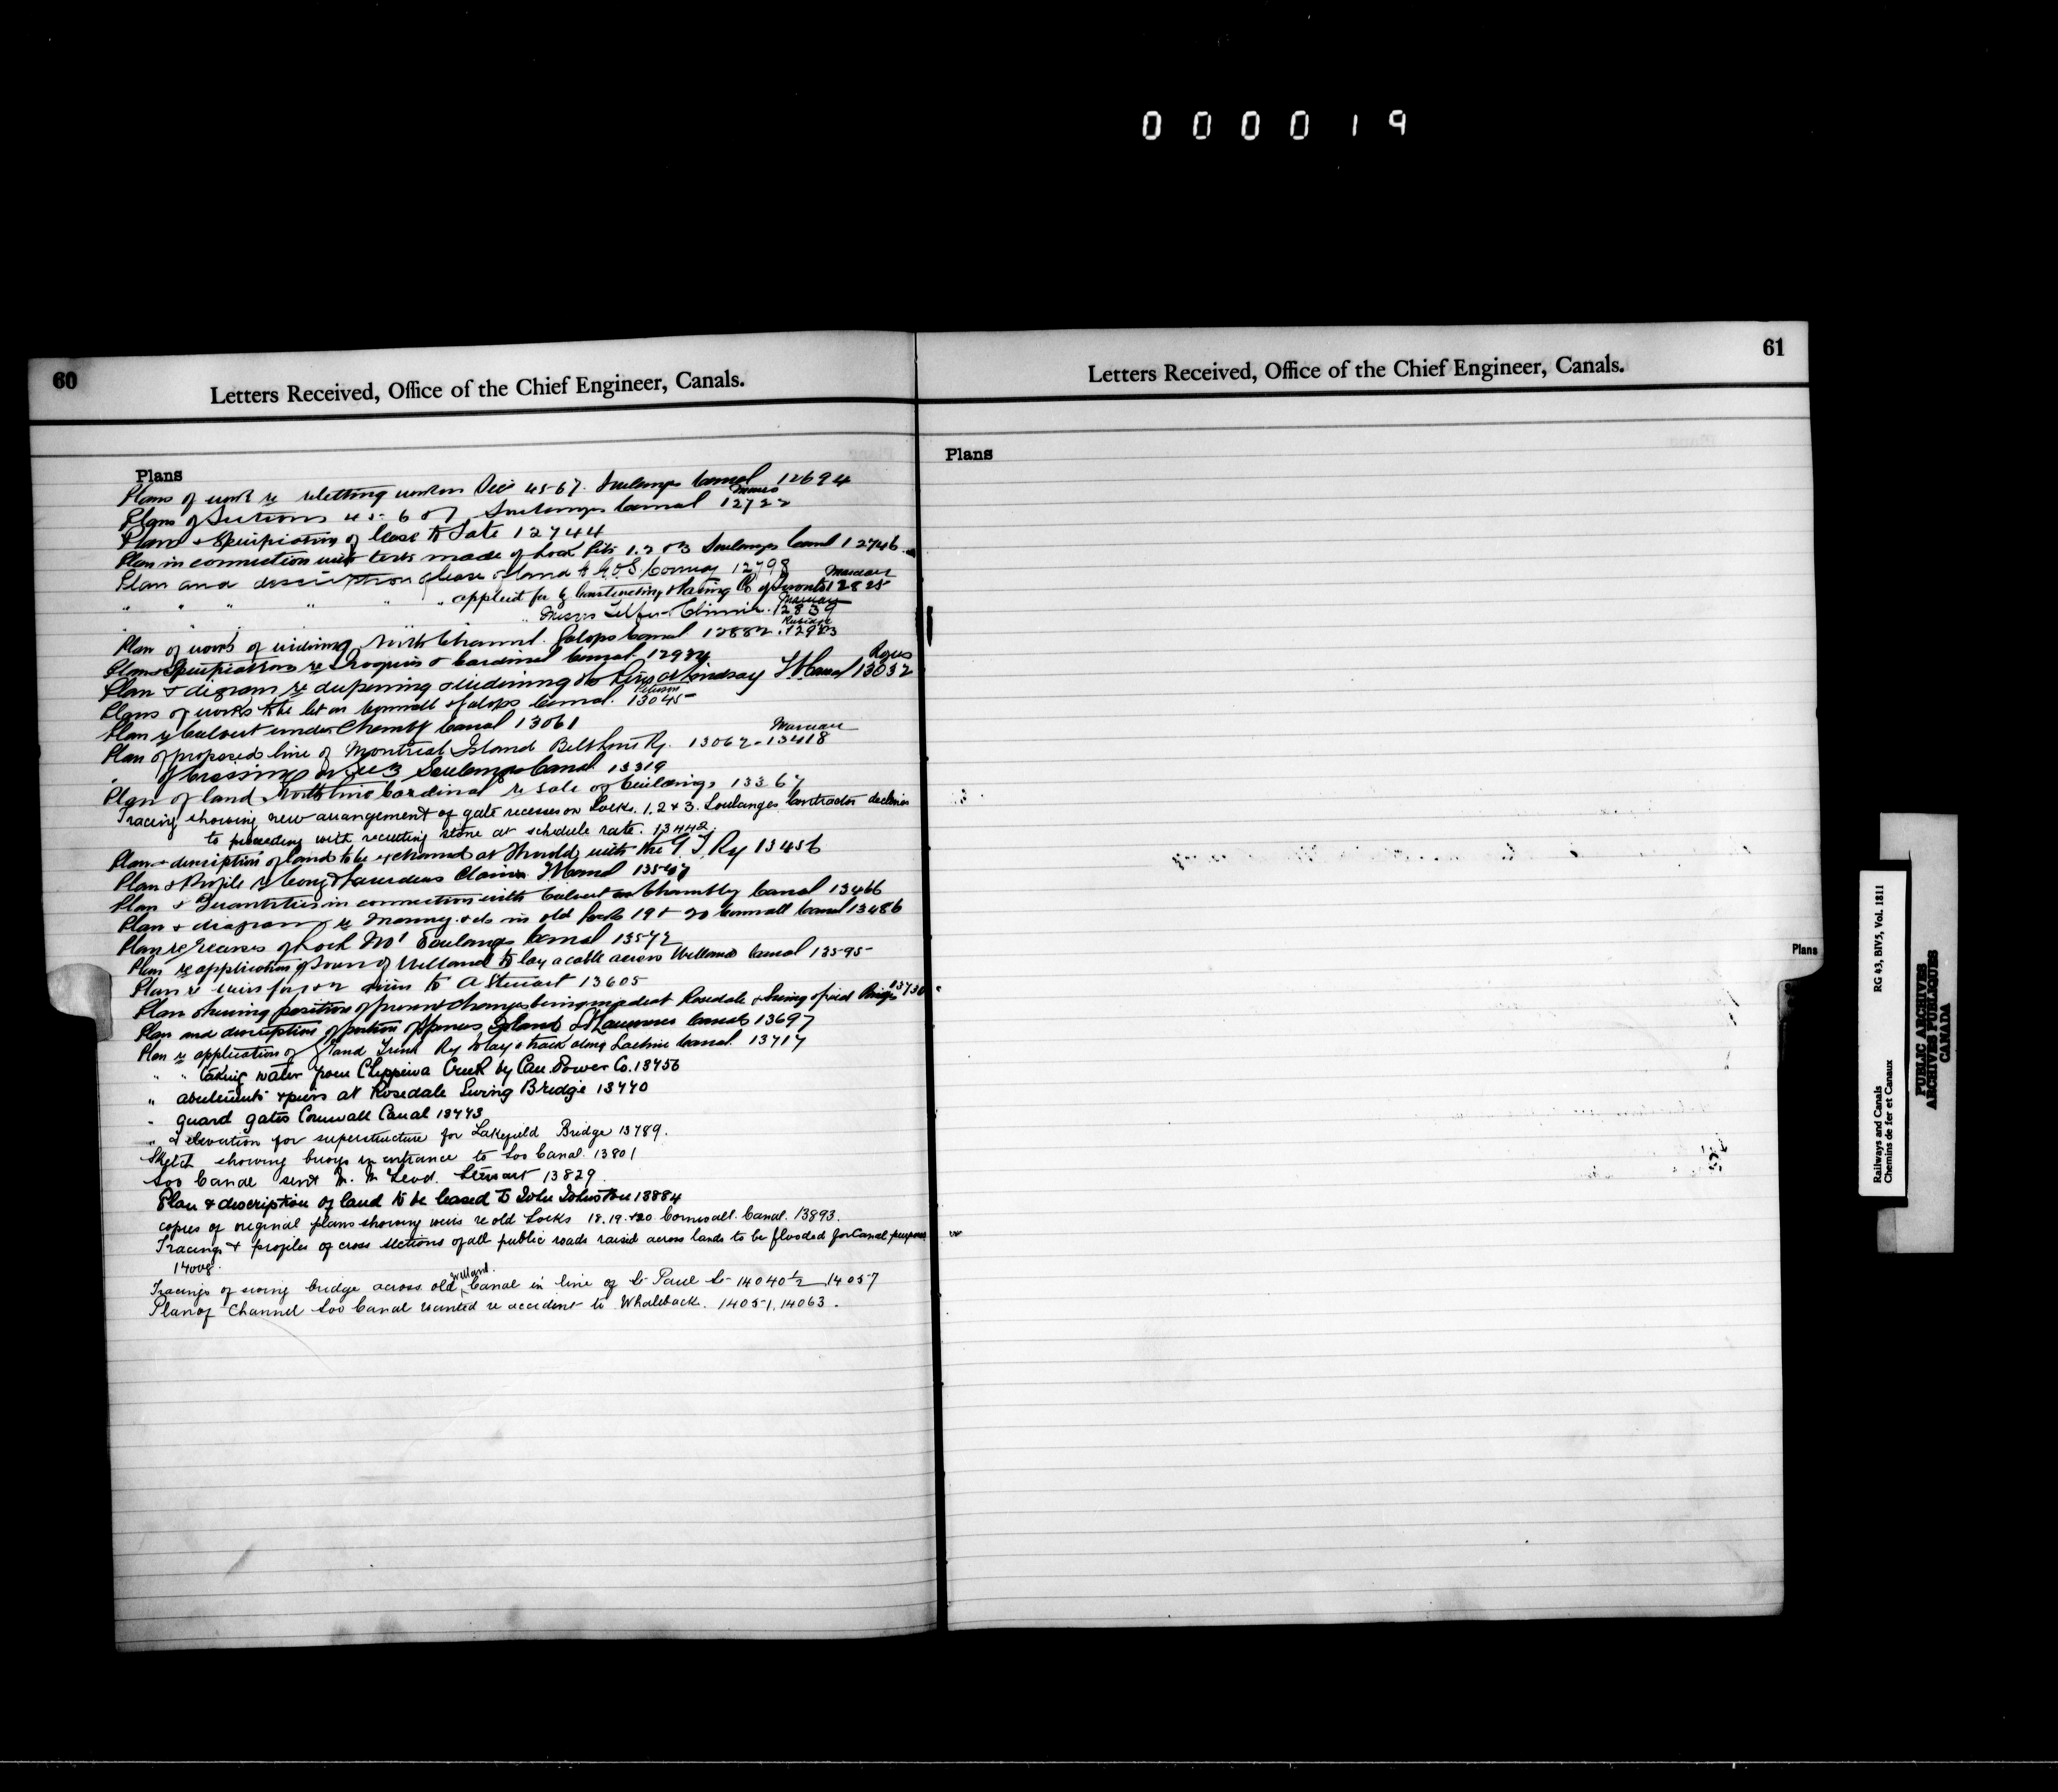 000019
60
Letters Received, Office of the Chief Engineer, Canals.
Plans
Plans of work re reletting work on Secs 4 5 6 7. Soulanges Canal 12694
Plans of Sections 4 5 6 & 7 Soulanges Canal 12722
Plans & Specifications of lease to date 12744
Plan in connection with tests made of Lock Pits 1. 2 & 3 Soulanges Canal 12746
Plan and description of lease of land to Conway 12798
" " " " " applied for by Constructing & Paving Co of Toronto 12825 Marceau
" Messrs 12839 Marceau
Plan of works of widening North Channel. Galops Canal 12882. 12983
Plans & Specifications re Iroquois & Cardinal Canal. 12984
Plan & diagram re deepening & widening the River at Lindsay T. Canal 13032 Rogers
Plans of works to be let on Cornwall & Galops Canal. 13045
Plan re Culvert under Chambly Canal 13061
Plan of proposed line of Montreal Island Belt Line Ry. 13062 - 13418 Marceau
" of Crossing on Sec 3 Soulanges Canal 13319
Plan of land North line Cardinal re sale of buildings 13367
Tracing showing new arrangement of gate recesses on Locks. 1. 2 & 3. Soulanges Contractor declines
to proceeding with recutting stone at schedule rate. 13442
Plan & description of land to be exchanged at Thorold with the G T Ry 13456
Plan & Profile re Claim Canal
Plan & Quantities in connection with Culvert Chambly Canal 13466
Plan & diagram re Masonry &c in old locks 19 & 20 Cornwall Canal 13486
Plan re recesses of Lock No 1 Soulanges Canal 13572
Plan re application of Town of Welland to lay a cable across Welland Canal 13595
Plan re to A Stewart 13605
Plan showing position of present changes being made at Rosedale & Swing & fixed Bridge 13730
Plan and description of portion of Spences Island St Lawrence Canals 13697
Plan re application of Grand Trunk Ry to lay a track along Lachine Canal. 13717
" " taking water from Chippewa Creek by Can. Power Co. 13756
" abutments & piers at Rosedale Swing Bridge 13770
" guard gates Cornwall Canal 13773
" & elevation for superstructure for Lakefield Bridge 13789.
Sketch showing buoys in entrance to Soo Canal. 13801
Soo Canal sent Mr. McLeod. Stewart 13829
Plan & description of land to be leased to John Johnston 13884
copies of original plans showing weirs re old Locks 18. 19. & 20. Cornwall. Canal. 13893.
Tracings & profiles of cross sections of all public roads raised across lands to be flooded for Canal purposes
14008.
Tracings of swing bridge across old Welland Canal in line of St Paul St 14040½ 14057
Plan of Channel Soo Canal wanted re accident to Whaleback. 14051, 14063.
61
Letters Received, Office of the Chief Engineer, Canals.
Plans
Plans
Railways and Canals
Chemins de fer et Canaux
RG 43, BIV5, Vol. 1811
PUBLIC ARCHIVES
ARCHIVES PUBLIQUES
CANADA